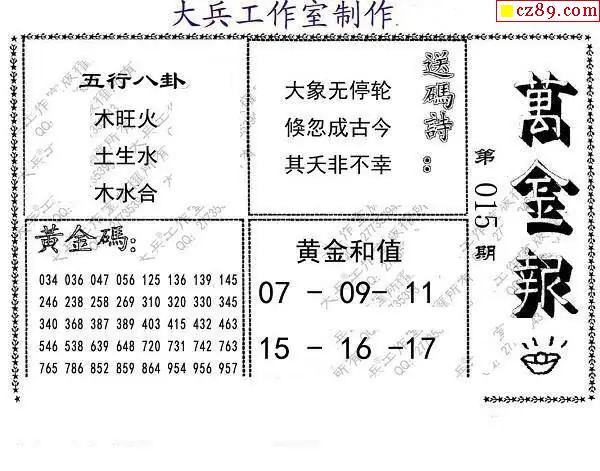 大兵工作室制作
cz89.com
五行八卦
木旺火
土生水
木水合
送碼詩：
大象无停轮
倏忽成古今
其夭非不幸
萬金報
第015期
黃金碼：
034 036 047 056 125 136 139 145
246 238 258 269 310 320 330 345
340 368 387 389 403 415 432 463
546 538 639 648 720 731 742 763
765 786 852 859 864 954 956 957
黄金和值
07 - 09- 11
15 - 16 -17